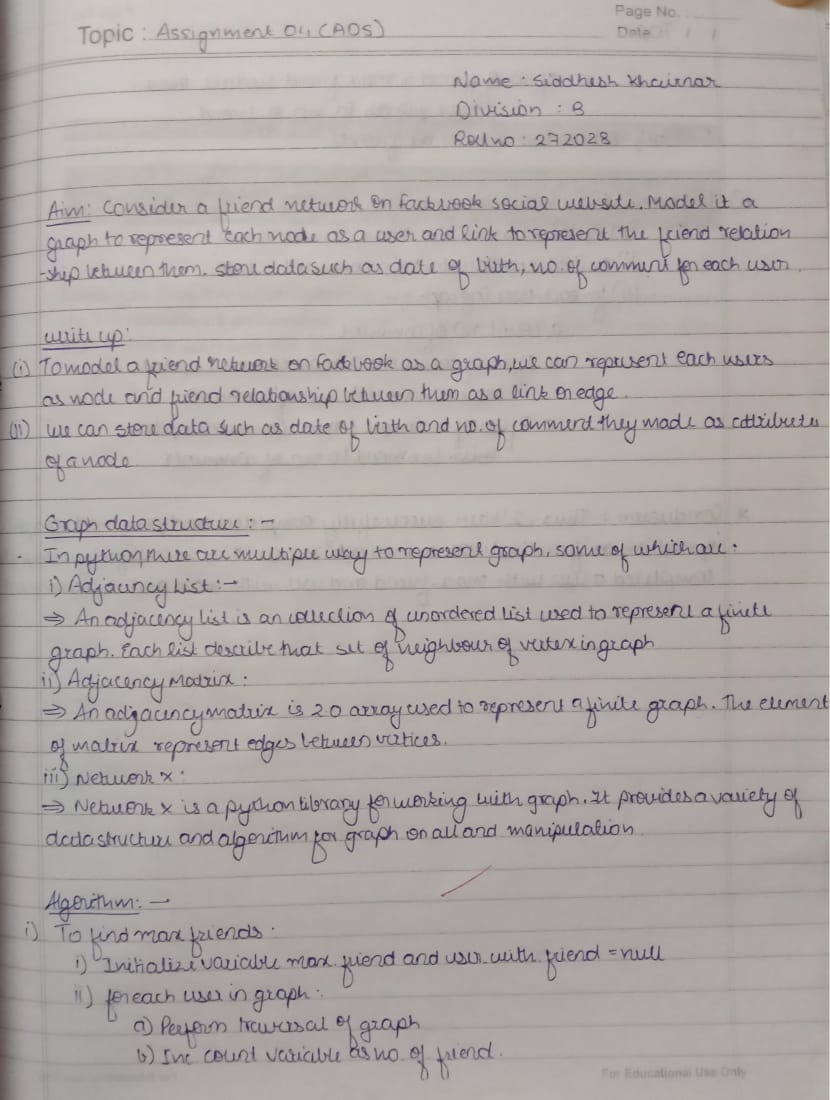 Page No.
Topic : Assignment 04 (ADS)
Date : / /
Name : Siddhesh Khairnar
Division : B
Roll no : 272028
Aim: Consider a friend network on facebook social website. Model it a
graph to represent each node as a user and link to represent the friend relation
-ship between them. store data such as date of birth, no. of comment for each user.
write up:
(i) To model a friend network on facebook as a graph, we can represent each users
as node and friend relationship between them as a link or edge.
(ii) we can store data such as date of birth and no. of commend they made as attribute
of a node
Graph data structure : -
- In python there are multiple way to represent graph, some of which are :
i) Adjacency List :-
⇒ An adjacency list is an collection of unordered list used to represent a finite
graph. Each list describe that set of neighbour of vertex in graph
ii) Adjacency Matrix :
⇒ An adjacency matrix is 2D array used to represent a finite graph. The element
of matrix represent edges between vertices.
iii) Network x :
⇒ Network x is a python library for working with graph. It provides a variety of
data structure and algorithm for graph on all and manipulation
Algorithm: -
i) To find max friends :
i) Initialize variable max friend and user with friend = null
ii) for each user in graph :
a) Perform traversal of graph
b) Inc count variable as no. of friend.
For Educational Use Only